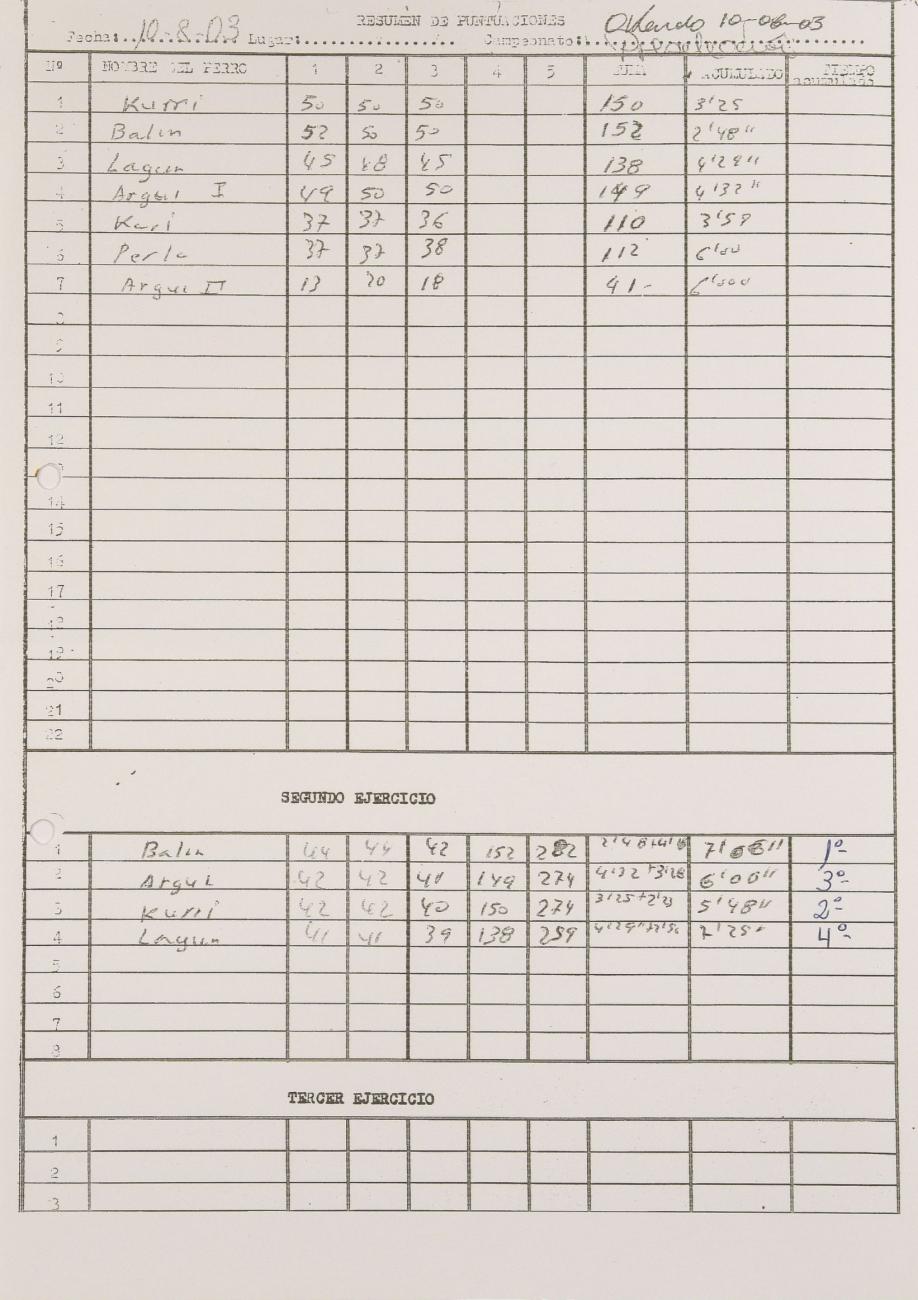 RESUMEN DE PUNTUACIONES
Okendo 10-08-03
Fecha: 10-8-03 Lugar: Campeonato:
Nº NOMBRE DEL PERRO 1 2 3 4 5 SUMA ACUMULADO TIEMPO acumulado
1 Kurri 50 50 50 150 3'25
2 Balin 52 50 50 152 2'48"
3 Lagun 45 48 45 138 4'29"
4 Argui I 49 50 50 149 4'32"
5 Kari 37 37 36 110 3'59
6 Perla 37 37 38 112 6'00
7 Argui II 13 20 18 41
8
9
10
11
12
14
15
16
17
18
19
20
21
22
SEGUNDO EJERCICIO
1 Balin 44 44 42 152 282 1º
2 Argui 42 42 41 149 274 4'32+3'28 6'00" 3º
3 Kurri 42 42 40 150 274 3'25+2'23 5'48" 2º
4 Lagun 41 41 39 138 259 7'25" 4º
5
6
7
8
TERCER EJERCICIO
1
2
3